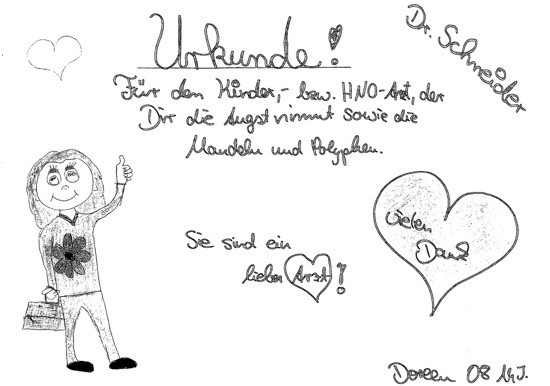 Urkunde!
Dr. Schneider
Für den Kinder,- bzw. HNO-Arzt, der
Dir die Angst nimmt sowie die
Mandeln und Polyphen.
Sie sind ein
lieber Arzt!
vielen
Dank
Doreen 08 14J.